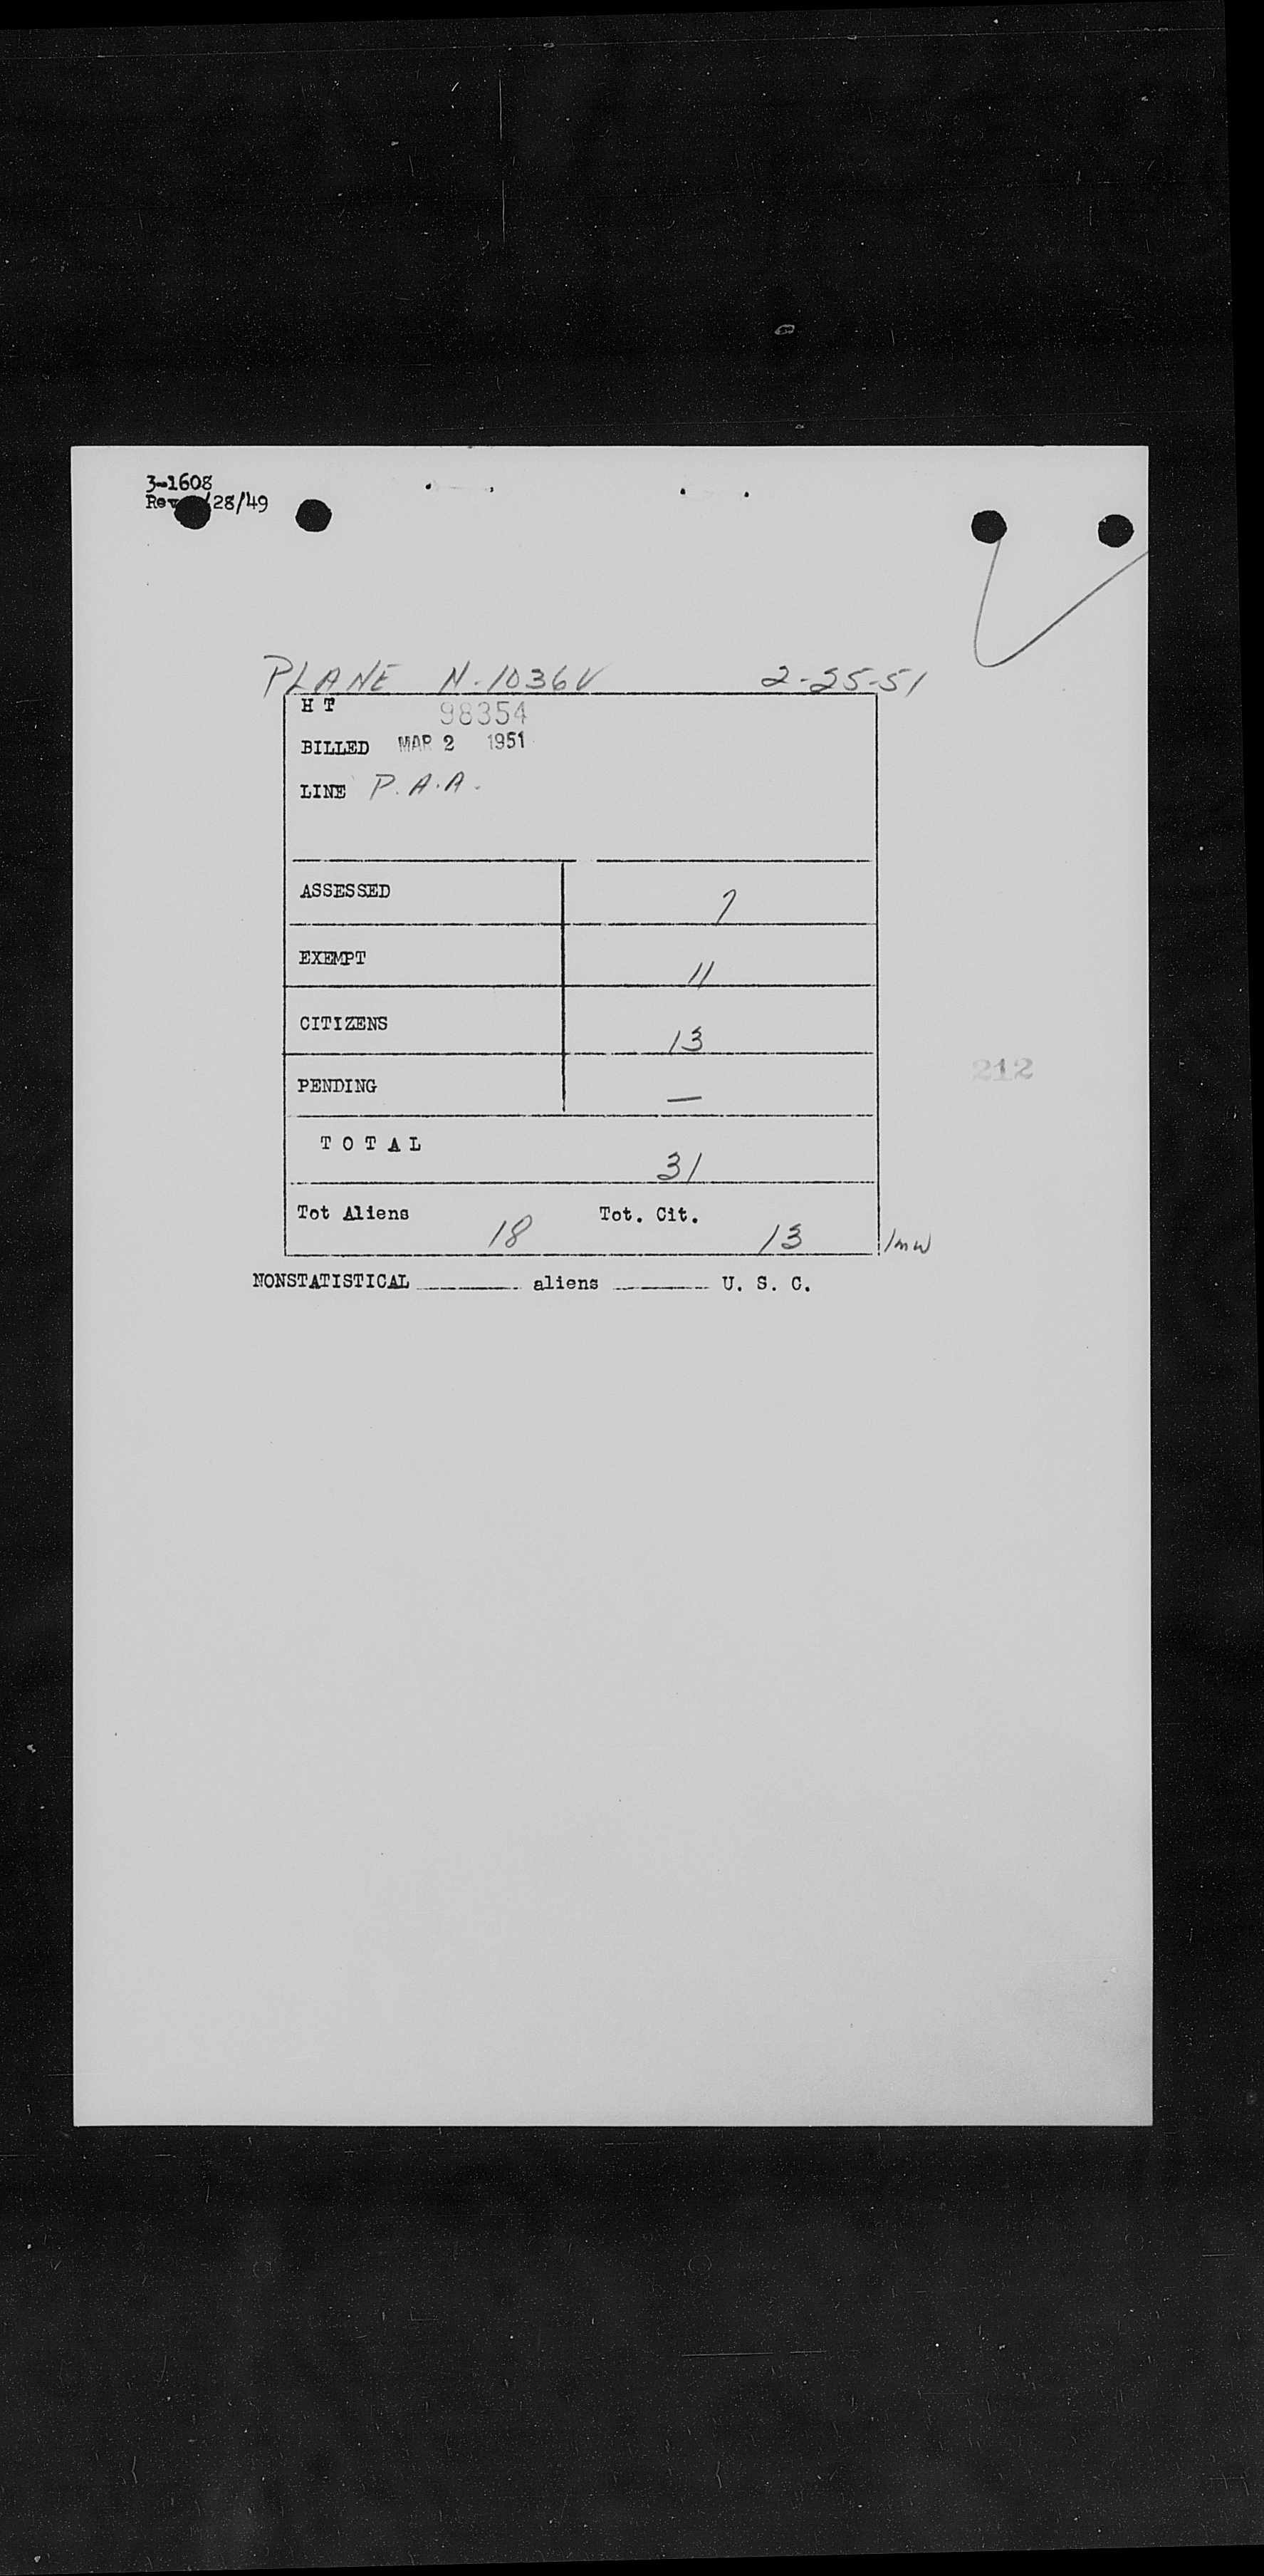 3-1608
Rev /28/49
PLANE N-1036V 2-25-51
H T 98354
BILLED MAR 2 1951
LINE P.A.A.
ASSESSED 7
EXEMPT 11
CITIZENS 13
PENDING —
212
T O T A L 31
Tot Aliens 18 Tot. Cit. 13
NONSTATISTICAL ______ aliens ______ U. S. C.